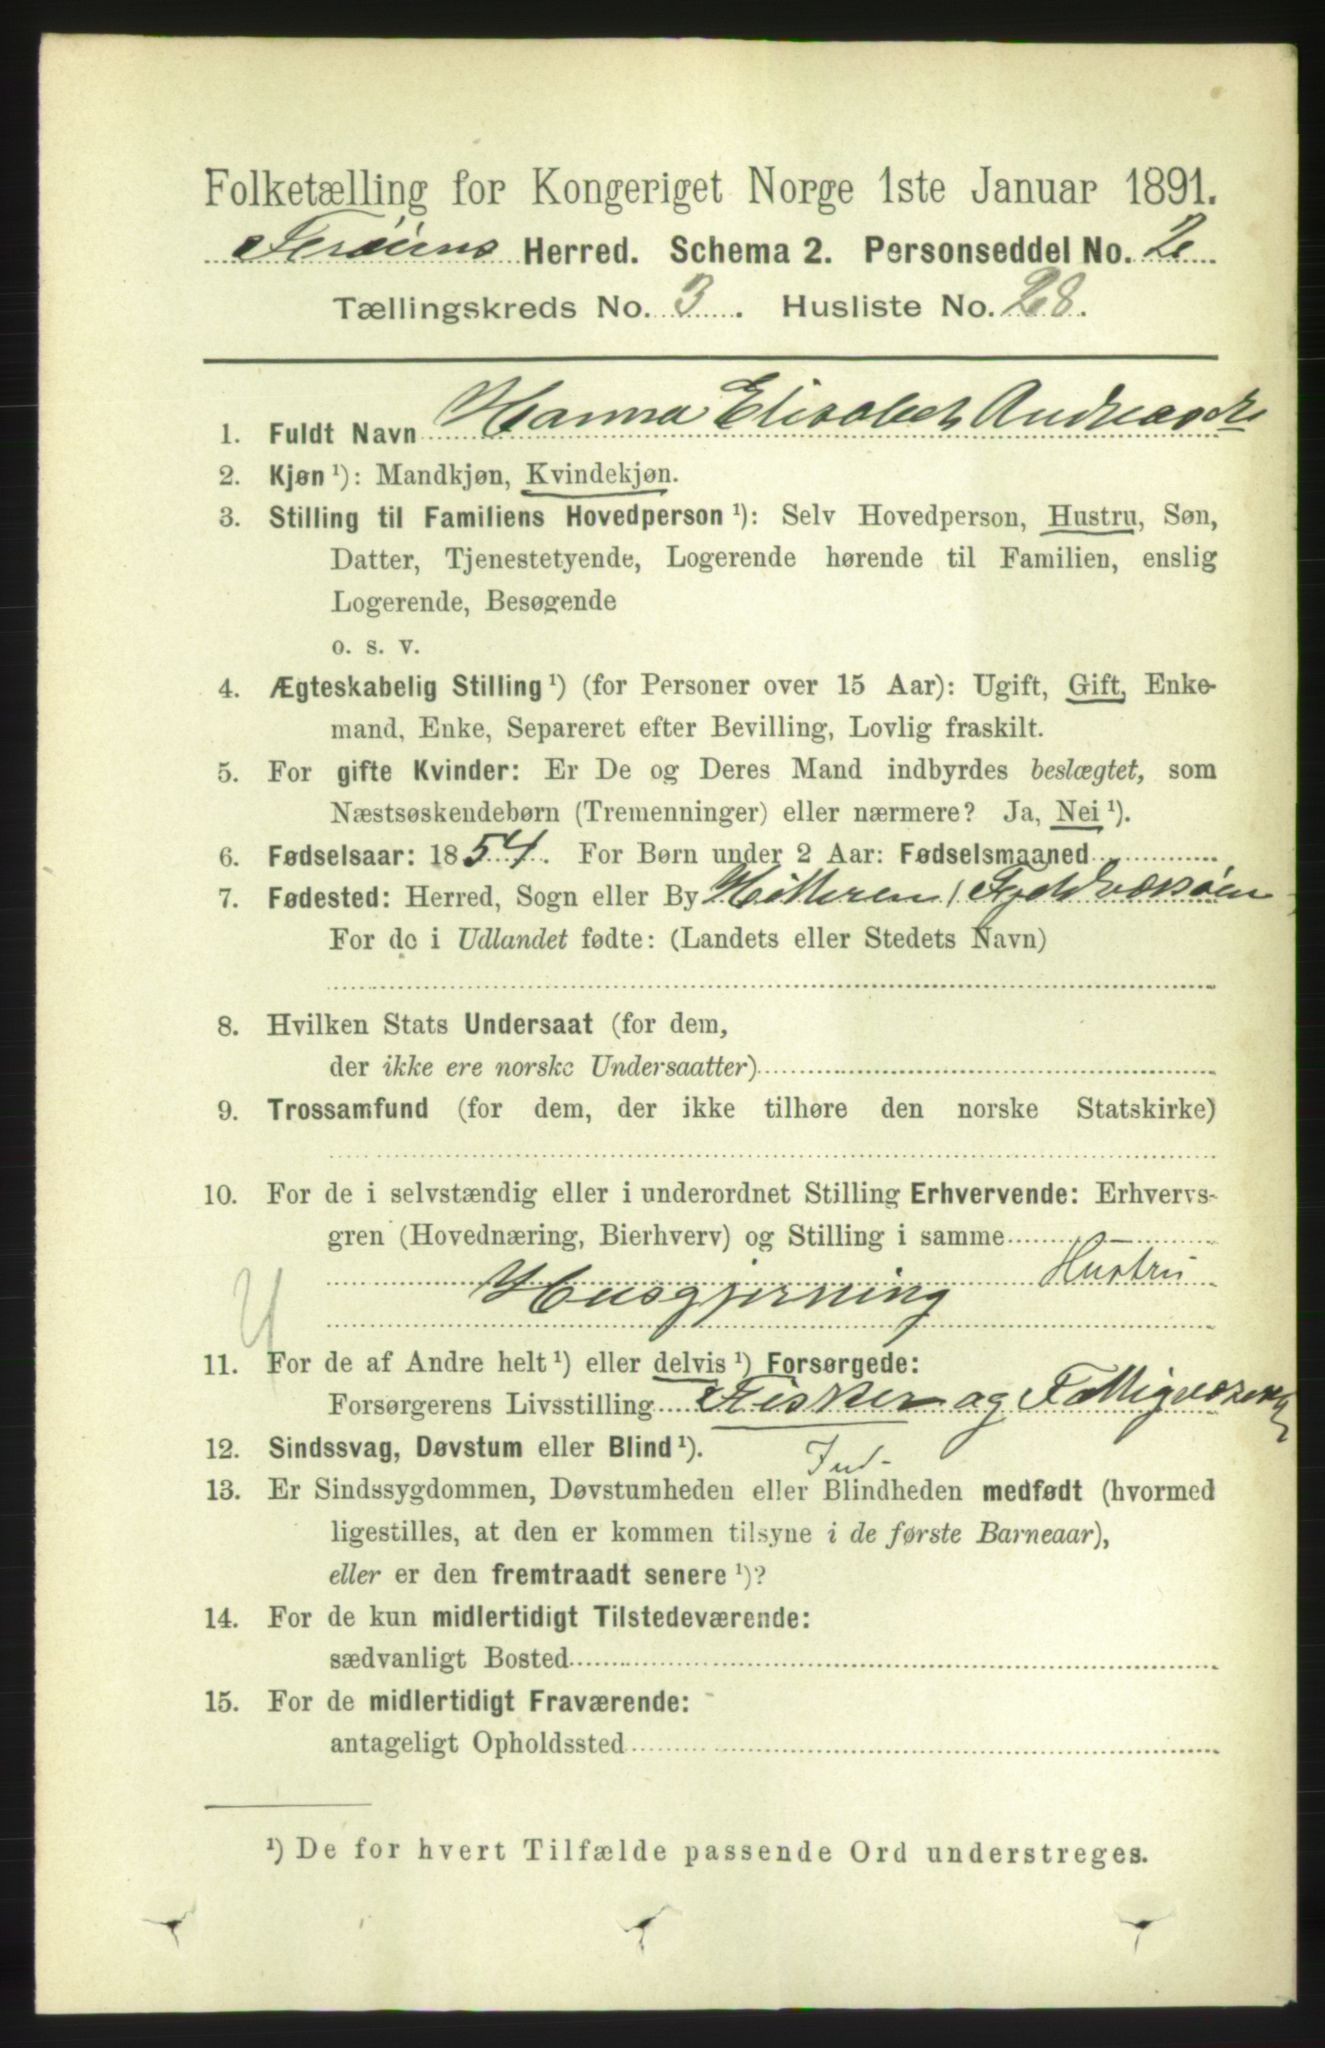 Folketælling for Kongeriget Norge 1ste Januar 1891.
Frøiens Herred. Schema 2. Personseddel No. 2
Tællingskreds No. 3. Husliste No. 28.
1. Fuldt Navn Hanna Elisabet Andreasdtr
2. Kjøn ¹): Mandkjøn, Kvindekjøn.
3. Stilling til Familiens Hovedperson ¹): Selv Hovedperson, Hustru, Søn,
Datter, Tjenestetyende, Logerende hørende til Familien, enslig
Logerende, Besøgende
o. s. v.
4. Ægteskabelig Stilling ¹) (for Personer over 15 Aar): Ugift, Gift, Enke-
mand, Enke, Separeret efter Bevilling, Lovlig fraskilt.
5. For gifte Kvinder: Er De og Deres Mand indbyrdes beslægtet, som
Næstsøskendebørn (Tremenninger) eller nærmere? Ja, Nei ¹).
6. Fødselsaar: 1854. For Børn under 2 Aar: Fødselsmaaned
7. Fødested: Herred, Sogn eller By Hitteren / Fjeldværøen
For de i Udlandet fødte: (Landets eller Stedets Navn)
8. Hvilken Stats Undersaat (for dem,
der ikke ere norske Undersaatter)
9. Trossamfund (for dem, der ikke tilhøre den norske Statskirke)
10. For de i selvstændig eller i underordnet Stilling Erhvervende: Erhvervs-
gren (Hovednæring, Bierhverv) og Stilling i samme
Hustru
Husgjerning
11. For de af Andre helt ¹) eller delvis ¹) Forsørgede:
Forsørgerens Livsstilling Fisker og
12. Sindssvag, Døvstum eller Blind ¹).
13. Er Sindssygdommen, Døvstumheden eller Blindheden medfødt (hvormed
ligestilles, at den er kommen tilsyne i de første Barneaar),
eller er den fremtraadt senere ¹)?
14. For de kun midlertidigt Tilstedeværende:
sædvanligt Bosted
15. For de midlertidigt Fraværende:
antageligt Opholdssted
¹) De for hvert Tilfælde passende Ord understreges.